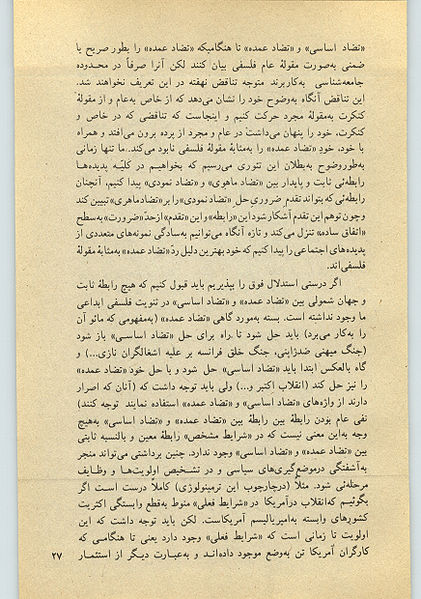 «تضاد اساسی» و «تضاد عمده» تا هنگامیکه «تضاد عمده» را بطور صریح یا
ضمنی به‌صورت مقولهٔ عام فلسفی بیان کنند لکن آنرا صرفاً در محدوده
جامعه‌شناسی به‌کاربرند متوجه تناقض نهفته در این تعریف نخواهند شد.
این تناقض آنگاه به‌وضوح خود را نشان می‌دهد که از خاص به‌عام و از مقولهٔ
کنکرت به‌مقولهٔ مجرد حرکت کنیم و اینجاست که تناقضی که در خاص و
کنکرت، خود را پنهان می‌داشت در عام و مجرد از پرده برون می‌افتد و همراه
با خود، خود «تضاد عمده» را به‌مثابهٔ مقولهٔ فلسفی نابود می‌کند. ما تنها زمانی
به‌طور وضوح به‌بطلان این تئوری می‌رسیم که بخواهیم در کلیّه پدیده‌ها
رابطه‌ئی ثابت و پایدار بین «تضاد ماهوی» و «تضاد نمودی» پیدا کنیم، آنچنان
رابطه‌ئی که بتواند تقدم ضروری حل «تضاد نمودی» را بر «تضاد ماهوی» تبیین کند
و چون توهم این تقدم آشکار شود این «رابطه» و این «تقدم» از حدّ «ضرورت» به‌سطح
«اتفاق ساده» تنزل می‌کند و تازه آنگاه می‌توانیم به‌سادگی نمونه‌های متعددی از
پدیده‌های اجتماعی را پیدا کنیم که خود بهترین دلیل ردّ «تضاد عمده» به‌مثابهٔ مقولهٔ
فلسفی‌اند.
اگر درستی استدلال فوق را بپذیریم باید قبول کنیم که هیچ رابطهٔ ثابت
و جهان شمولی بین «تضاد عمده» و «تضاد اساسی» در تئویت فلسفی ابداعی
ما وجود نداشته است. بسته به‌مورد گاهی «تضاد عمده» (به‌مفهومی که مائو آن
را به‌کار می‌برد) باید حل شود تا راه برای حل «تضاد اساسی» باز شود
(جنگ میهنی ضدژاپنی، جنگ خلق فرانسه بر علیه اشغالگران نازی...) و
گاه بالعکس ابتدا باید «تضاد اساسی» حل شود و با حل خود «تضاد عمده»
را نیز حل کند (انقلاب اکتبر و...) ولی باید توجه داشت که (آنان که اصرار
دارند از واژه‌های «تضاد اساسی» و «تضاد عمده» استفاده نمایند توجه کنند)
نفی عام بودن رابطهٔ بین رابطهٔ بین «تضاد عمده» و «تضاد اساسی» به‌هیچ
وجه به‌این معنی نیست که در «شرایط مشخص» رابطهٔ معین و بالنسبه ثابتی
بین «تضاد عمده» و «تضاد اساسی» وجود ندارد. چنین برداشتی می‌تواند منجر
به‌آشفتگی درموضع‌گیری‌های سیاسی و در تشخیص اولویت‌ها و وظایف
مرحله‌ئی شود. مثلاً (درچارچوب این ترمینولوژی) کاملاً درست است اگر
بگوئیم که‌انقلاب درآمریکا در «شرایط فعلی» منوط به‌قطع وابستگی اکثریت
کشورهای وابسته به‌امپریالیسم آمریکاست. لکن باید توجه داشت که این
اولویت تا زمانی است که «شرایط فعلی» وجود دارد یعنی تا هنگامی که
کارگران آمریکا تن به‌وضع موجود داده‌اند و به‌عبارت دیگر از استثمار
۲۷